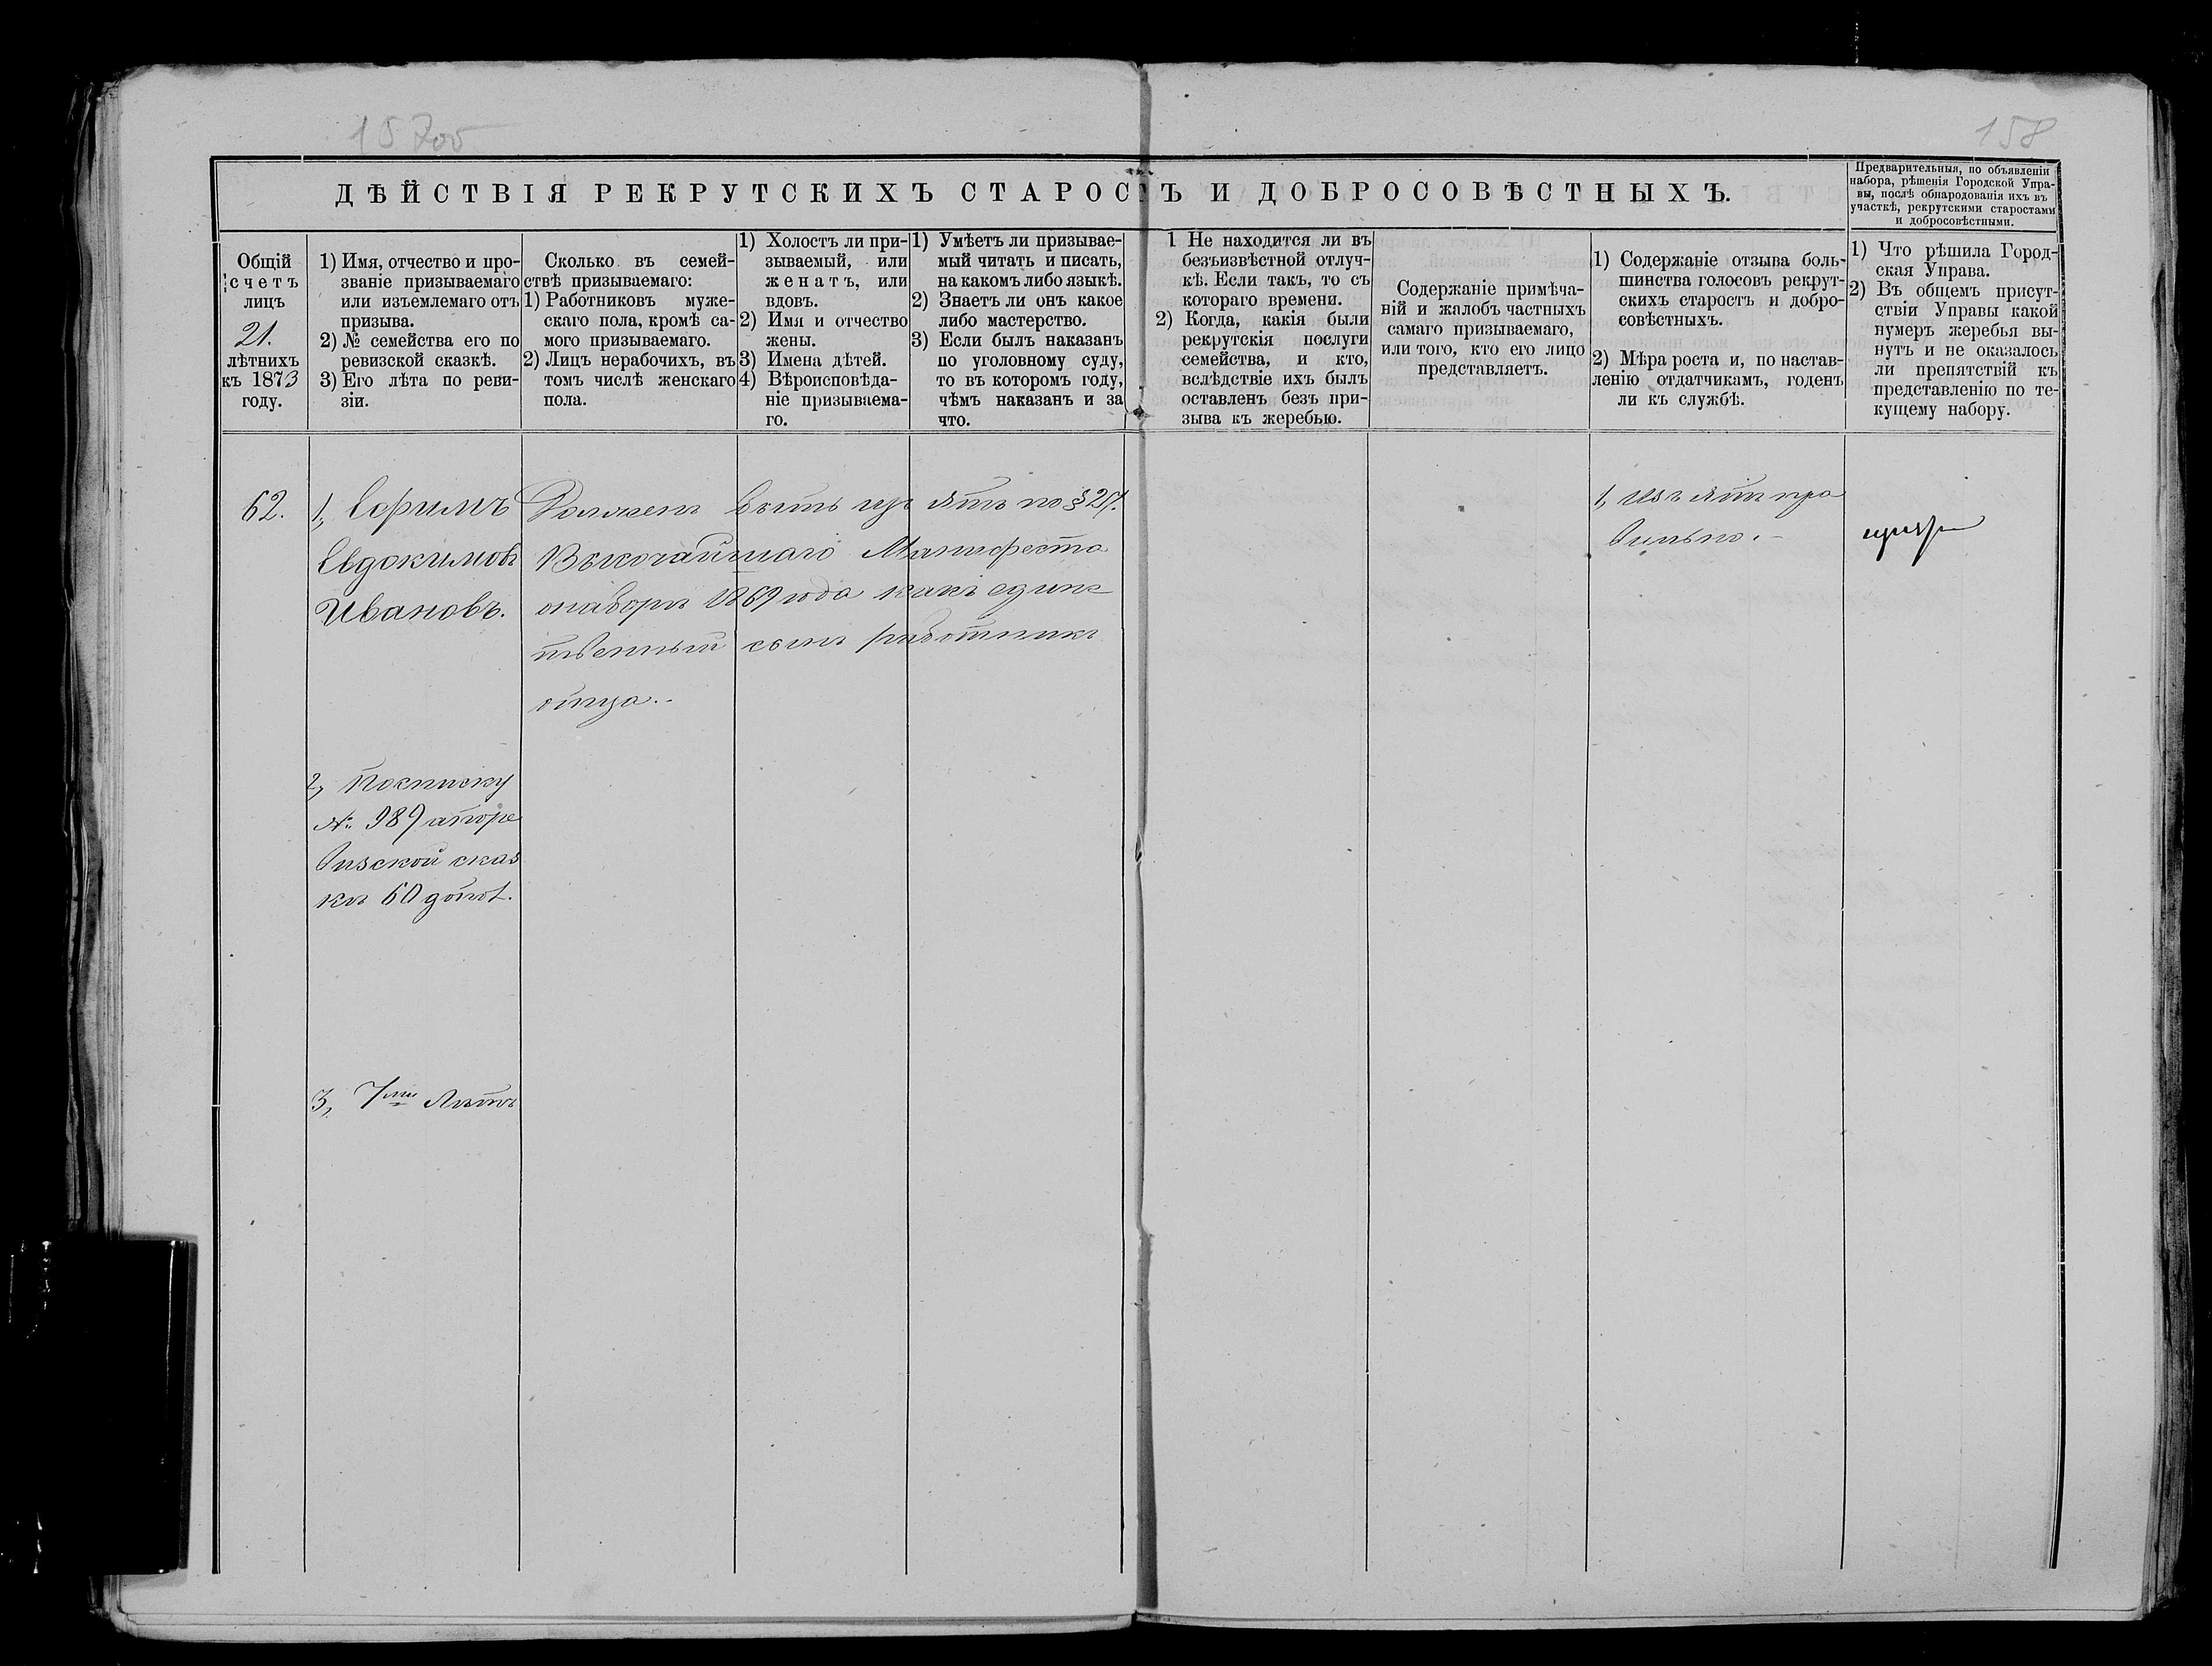 15 700
158
ДѢЙСТВІЯ РЕКРУТСКИХЪ СТАРОСТЪ И ДОБРОСОВѢСТНЫХЪ.
Предварительныя, по объявленіи
набора, рѣшенія Городской Упра-
вы, послѣ обнародованія ихъ въ
участкѣ, рекрутскими старостами
и добросовѣстными.
Общій
счетъ
лицъ
21.
лѣтнихъ
къ 1873
году.
1) Имя, отчество и про-
званіе призываемаго
или изъемлемаго отъ
призыва.
2) № семейства его по
ревизской сказкѣ.
3) Его лѣта по реви-
зіи.
Сколько въ семей-
ствѣ призываемаго:
1) Работниковъ муже-
скаго пола, кромѣ са-
мого призываемаго.
2) Лицъ нерабочихъ, въ
томъ числѣ женскаго
пола.
1) Холостъ ли при-
зываемый, или
женатъ, или
вдовъ.
2) Имя и отчество
жены.
3) Имена дѣтей.
4) Вѣроисповѣда-
ніе призываема-
го.
1) Умѣетъ ли призывае-
мый читать и писать,
на какомъ либо языкѣ.
2) Знаетъ ли онъ какое
либо мастерство.
3) Если былъ наказанъ
по уголовному суду,
то въ которомъ году,
чѣмъ наказанъ и за
что.
1 Не находится ли въ
безъизвѣстной отлуч-
кѣ. Если такъ, то съ
котораго времени.
2) Когда, какія были
рекрутскія послуги
семейства, и кто,
вслѣдствіе ихъ былъ
оставленъ безъ при-
зыва къ жеребью.
Содержаніе примѣча-
ній и жалобъ частныхъ
самаго призываемаго,
или того, кто его лицо
представляетъ.
1) Содержаніе отзыва боль-
шинства голосовъ рекрут-
скихъ старостъ и добро-
совѣстныхъ.
2) Мѣра роста и, по настав-
ленію отдатчикамъ, годенъ
ли къ службѣ.
1) Что рѣшила Город-
ская Управа.
2) Въ общемъ присут-
ствіи Управы какой
нумеръ жеребья вы-
нутъ и не оказалось
ли препятствій къ
представленію по те-
кущему набору.
62.
1, Ефимъ
Евдокимовъ
Ивановъ.
Долженъ быть изъятъ по §
Высочайшаго Манифеста
о наборѣ 1869 года какъ един
ственный сынъ работникъ
отца.
1, Изъятъ пра
вильно.
2, По списку
№ 989 а по ре
визской сказ
кѣ 60
3, 7ми лѣтъ